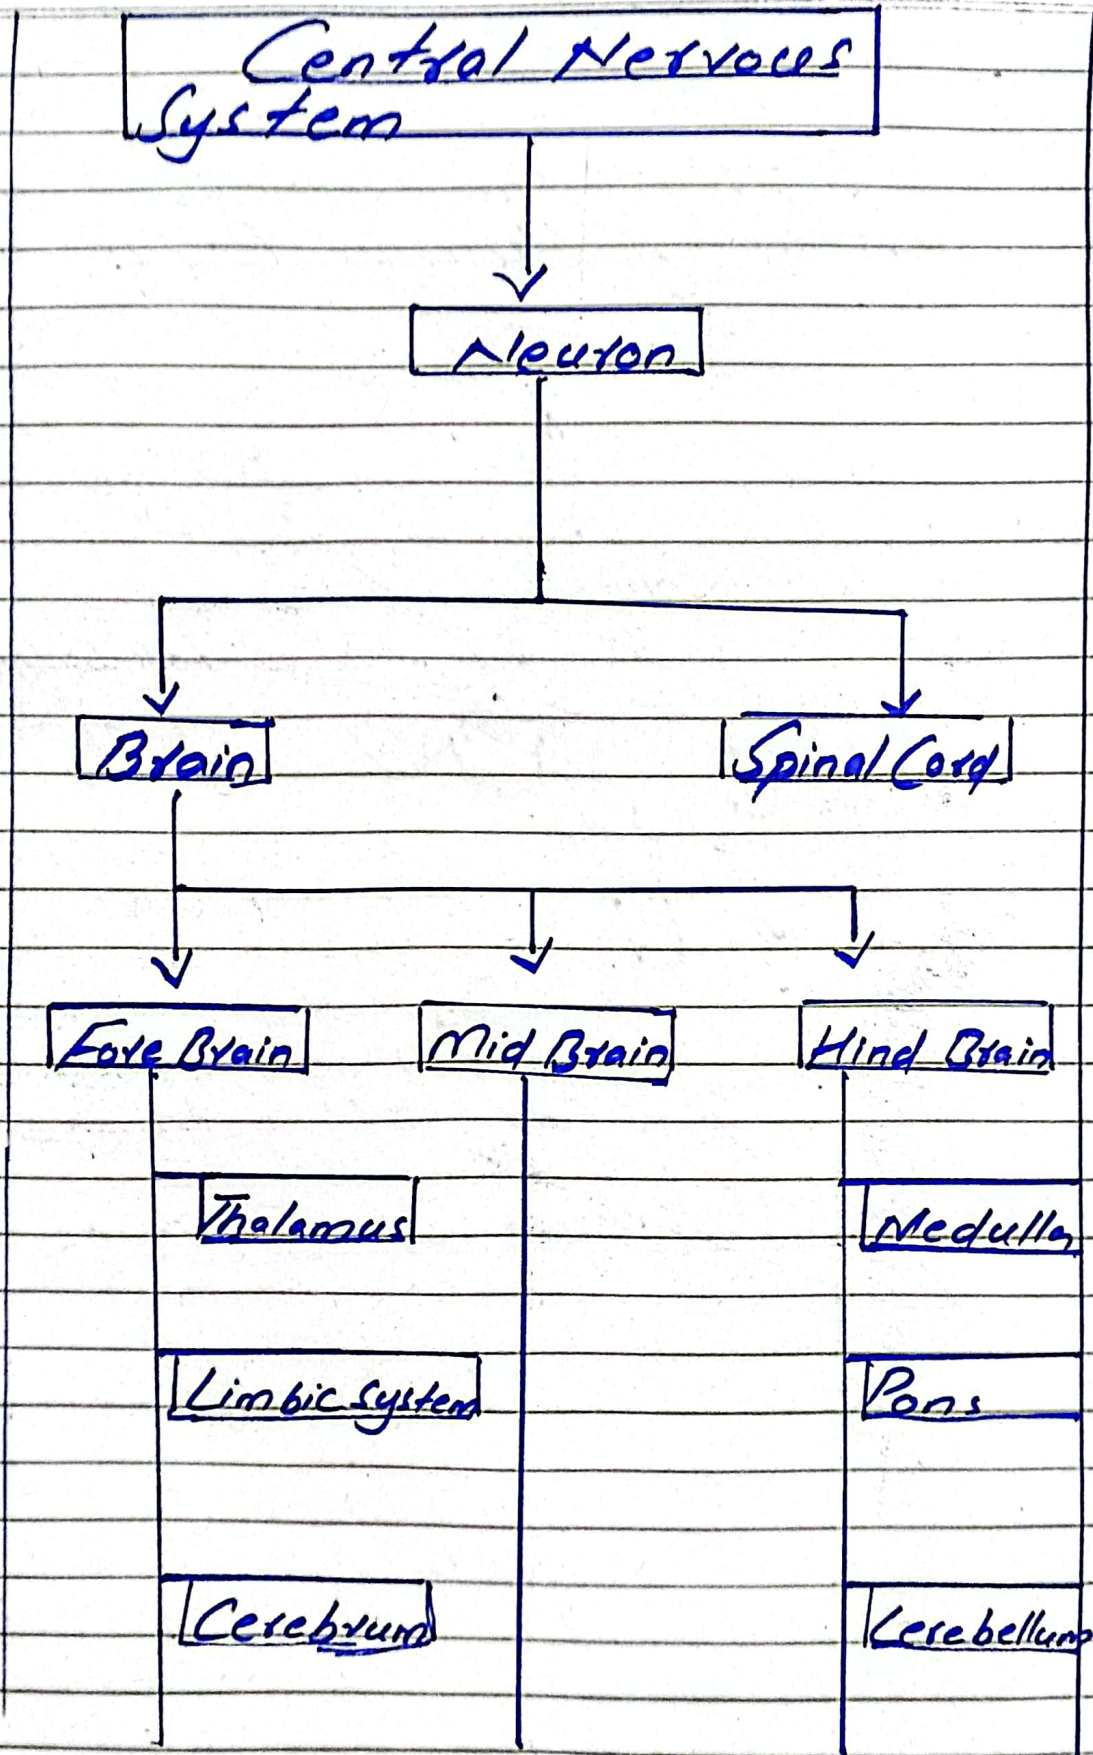 Central Nervous
System
Neuron
Brain
Spinal Cord
Fore Brain
Mid Brain
Hind Brain
Thalamus
Medulla
Limbic system
Pons
Cerebrum
Cerebellum